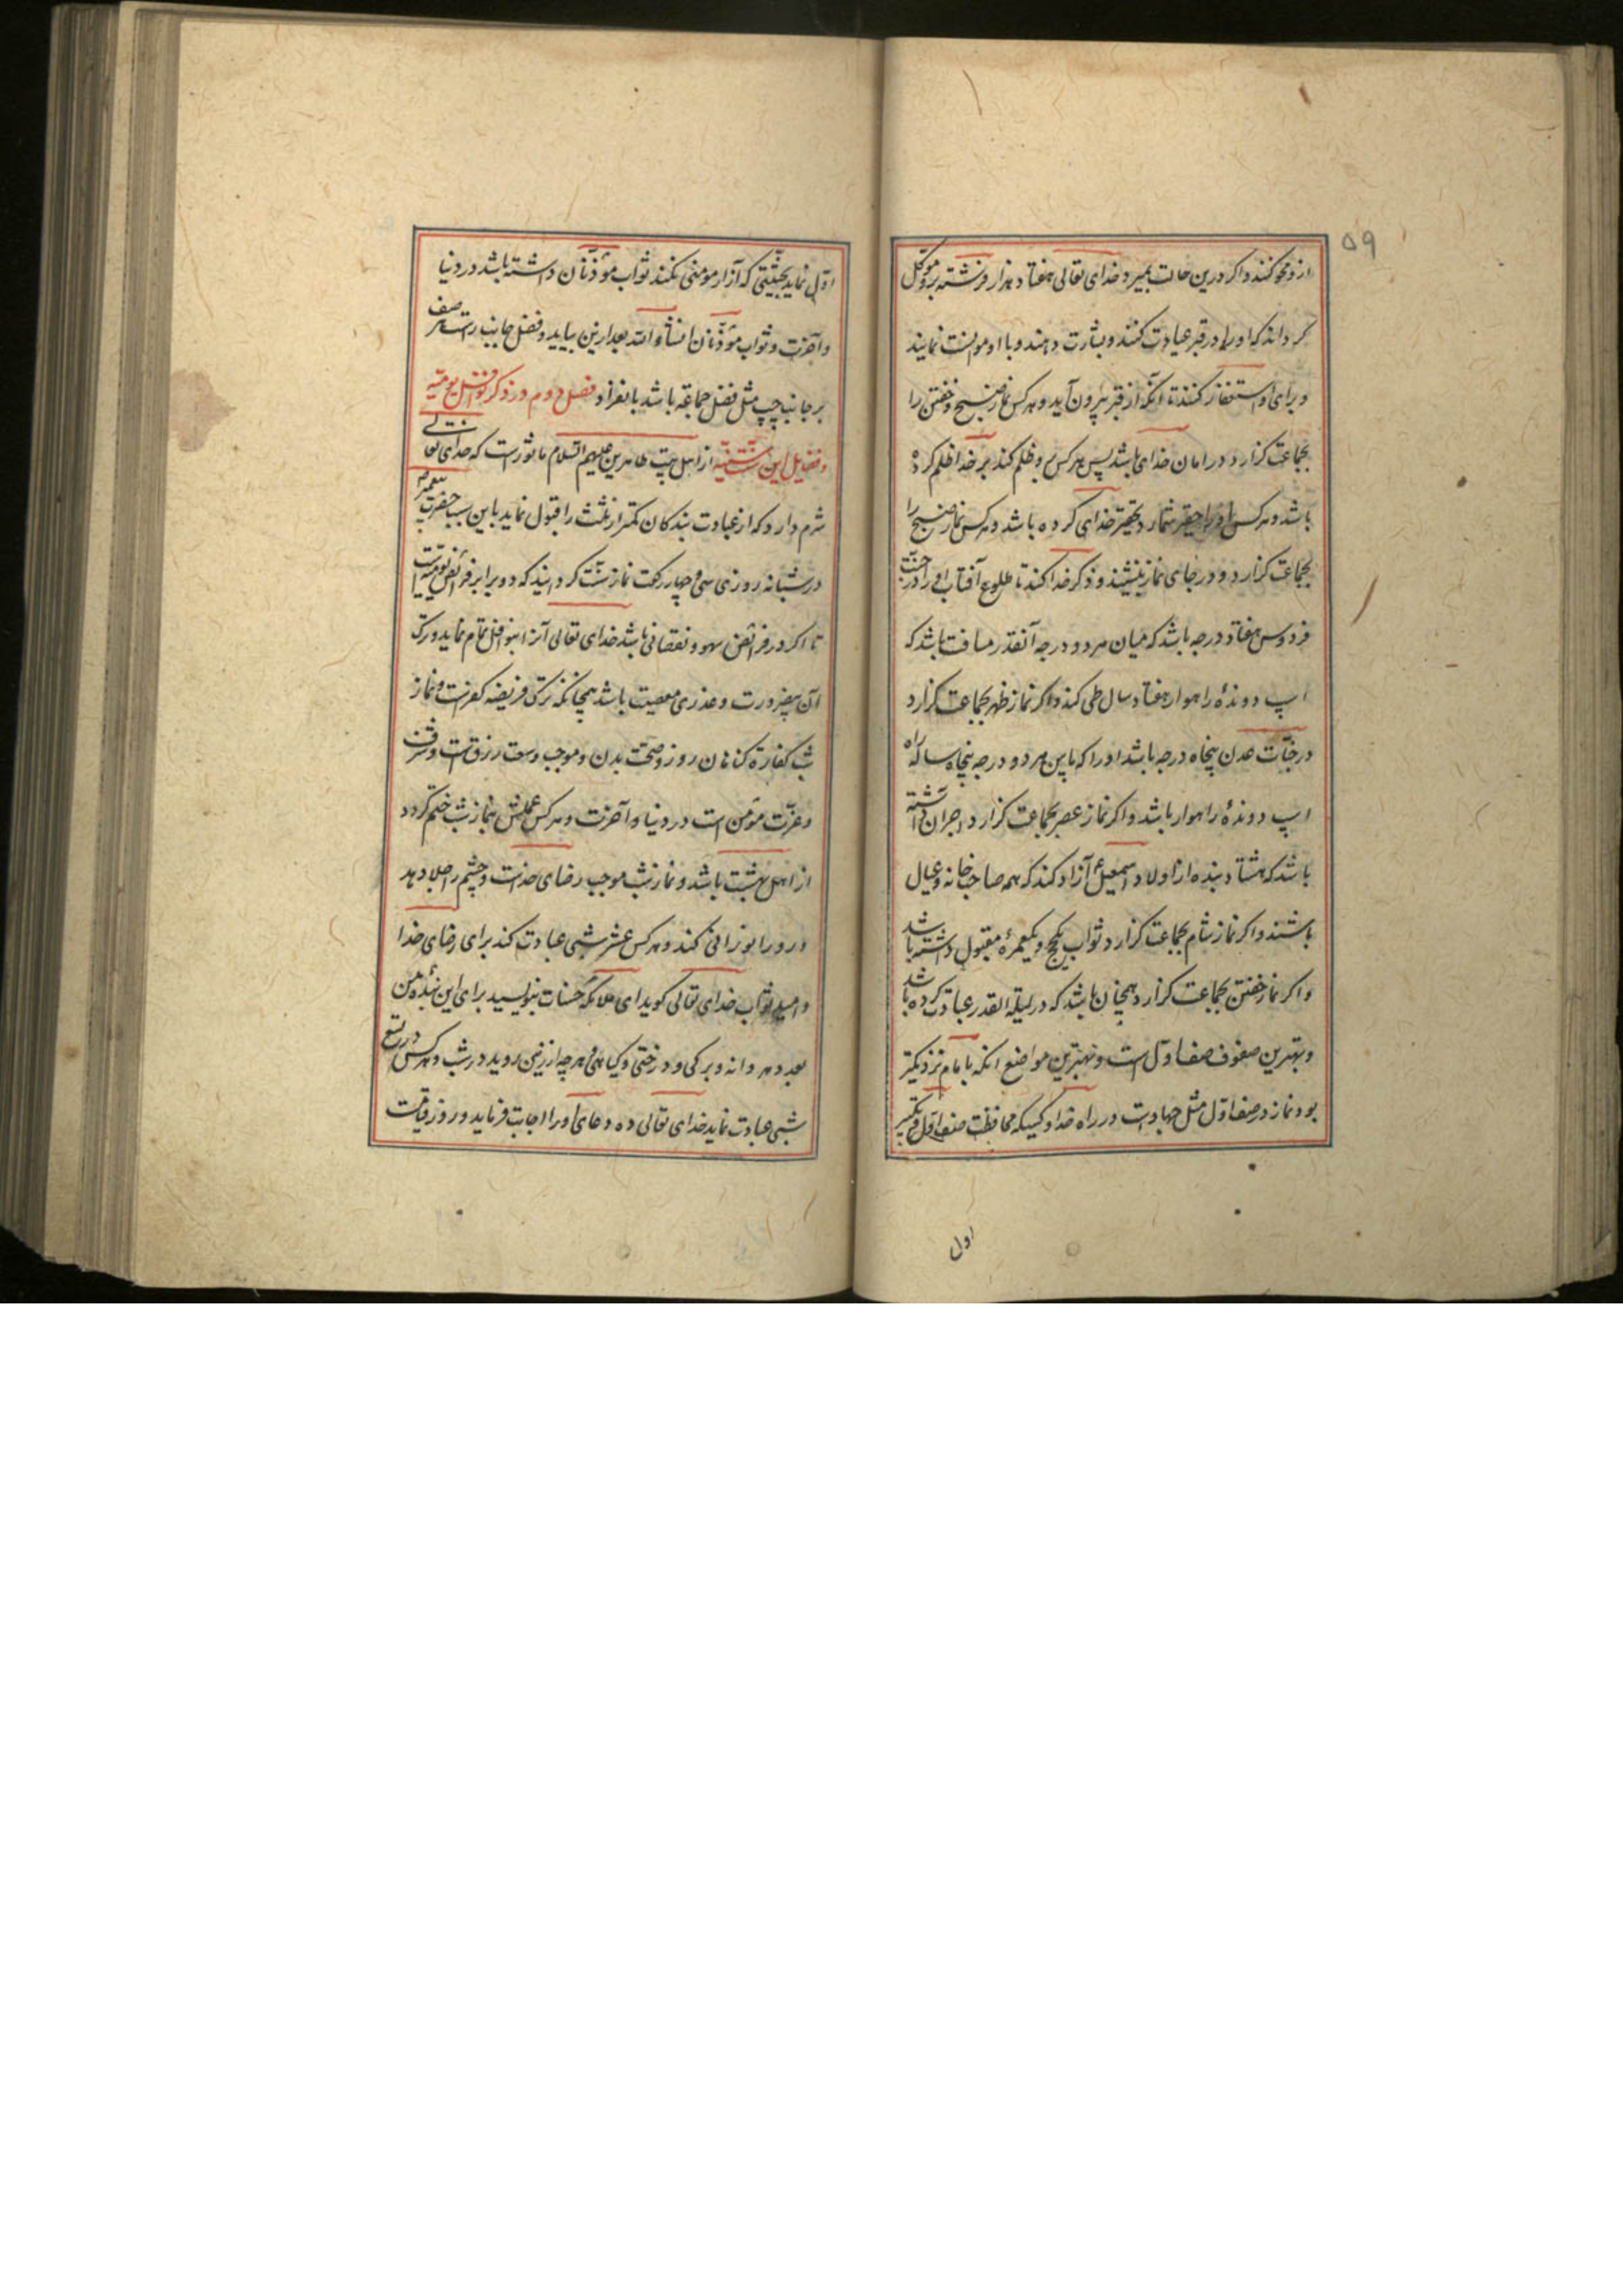 ۵۹
ازو محو کنند و اکر درین حالت بمیرد خدای تعالی هفتاد هزار فرشته برو موکّل
کرداند که او را در قبر عیادت کنند و بشارت دهند و با او موانست نمایند
و برای او استغفار کنند تا آنکه از قبر بیرون آید و هرکس نماز صبح و خفتن را
بجماعت کزارد در امان خدای باشد پس هرکس برو ظلم کند بر خدا ظلم کرده
باشد و هرکس او را حقیر شمارد تحقیر خدای کرده باشد و هرکس نماز صبح را
بجماعت کزارد و در جای نماز بنشیند و ذکر خدا کند تا طلوع آفتاب او را در جنّت
فردوس هفتاد درجه باشد که میان هر دو درجه آنقدر مسافت باشد که
اسپ دوندهٔ راهوار هفتاد سال طی کند و اکر نماز ظهر بجماعت کزارد
در جنّات عدن پنجاه درجه باشد او را که ما بین هر دو درجه پنجاه ساله راه
اسپ دوندهٔ راهوار باشد و اکر نماز عصر بجماعت کزارد اجر آن داشته
باشد که هشتاد بنده از اولاد اسمعیل آزاد کند که همه صاحب خانه و عیال
باشند و اکر نماز شام بجماعت کزارد ثواب یکحج و یکعمرهٔ مقبول داشته باشد
و اکر نماز خفتن بجماعت کزارد همچنان باشد که در لیلة القدر عبادت کرده باشد
و بهترین صفوف صف اوّل است و بهترین مواضع انکه بامام نزدیکتر
بود نماز در صف اوّل مثل جهادست در راه خدا و کسیکه محافظت صف اوّل و تکبیر
اول
اوّل نماید بحیثیّتی که آزار مومنی نکند ثواب مؤذّنان داشته باشد در دنیا
و آخرت و ثواب مؤذّنان انشاء الله بعد ازین بیاید و فضل جانب راست هر صف
بر جانب چپ مثل فضل جماعة باشد بانفراد فصل دوم در ذکر نوافل یومیّه
و فضایل این سنّت سنیّه از اهل بیت طاهرین علیهم السّلام ماثورست که خدای تعالی
شرم دارد که از عبادت بندکان کمتر از ثلث را قبول نماید باین سبب حضرت پیغمبر
در شبانه روزی سی و چهار رکعت نماز سنّت کردانیند که دو برابر فرائض یومیّه است
تا اکر در فرائض سهو و نقصانی باشد خدای تعالی آنرا بنوافل تمام نماید و ترک
آن بیضرورت و عذری معصیت باشد همچنانکه ترک فریضه کفرست و نماز
شب کفارة کناهان روز و صحّت بدن و موجب وسعت رزق است و شرف
و عزّت مؤمن است در دنیا و آخرت و هرکس عملش بنماز شب ختم کردد
از اهل بهشت باشد و نماز شب موجب رضای خداست و چشم را جلا دهد
و رو را نورانی کند و هرکس عشر شبی عبادت کند برای رضای خدا
و امید ثواب خدای تعالی کوید ای ملائکه حسنات بنویسید برای این بندهٔ من
بعدد هر دانه و برکی و درختی و کیاهی و هرچه از زمین روید در شب و هرکس در تسع
شبی عبادت نماید خدای تعالی ده دعای او را اجابت فرماید و روز قیامت